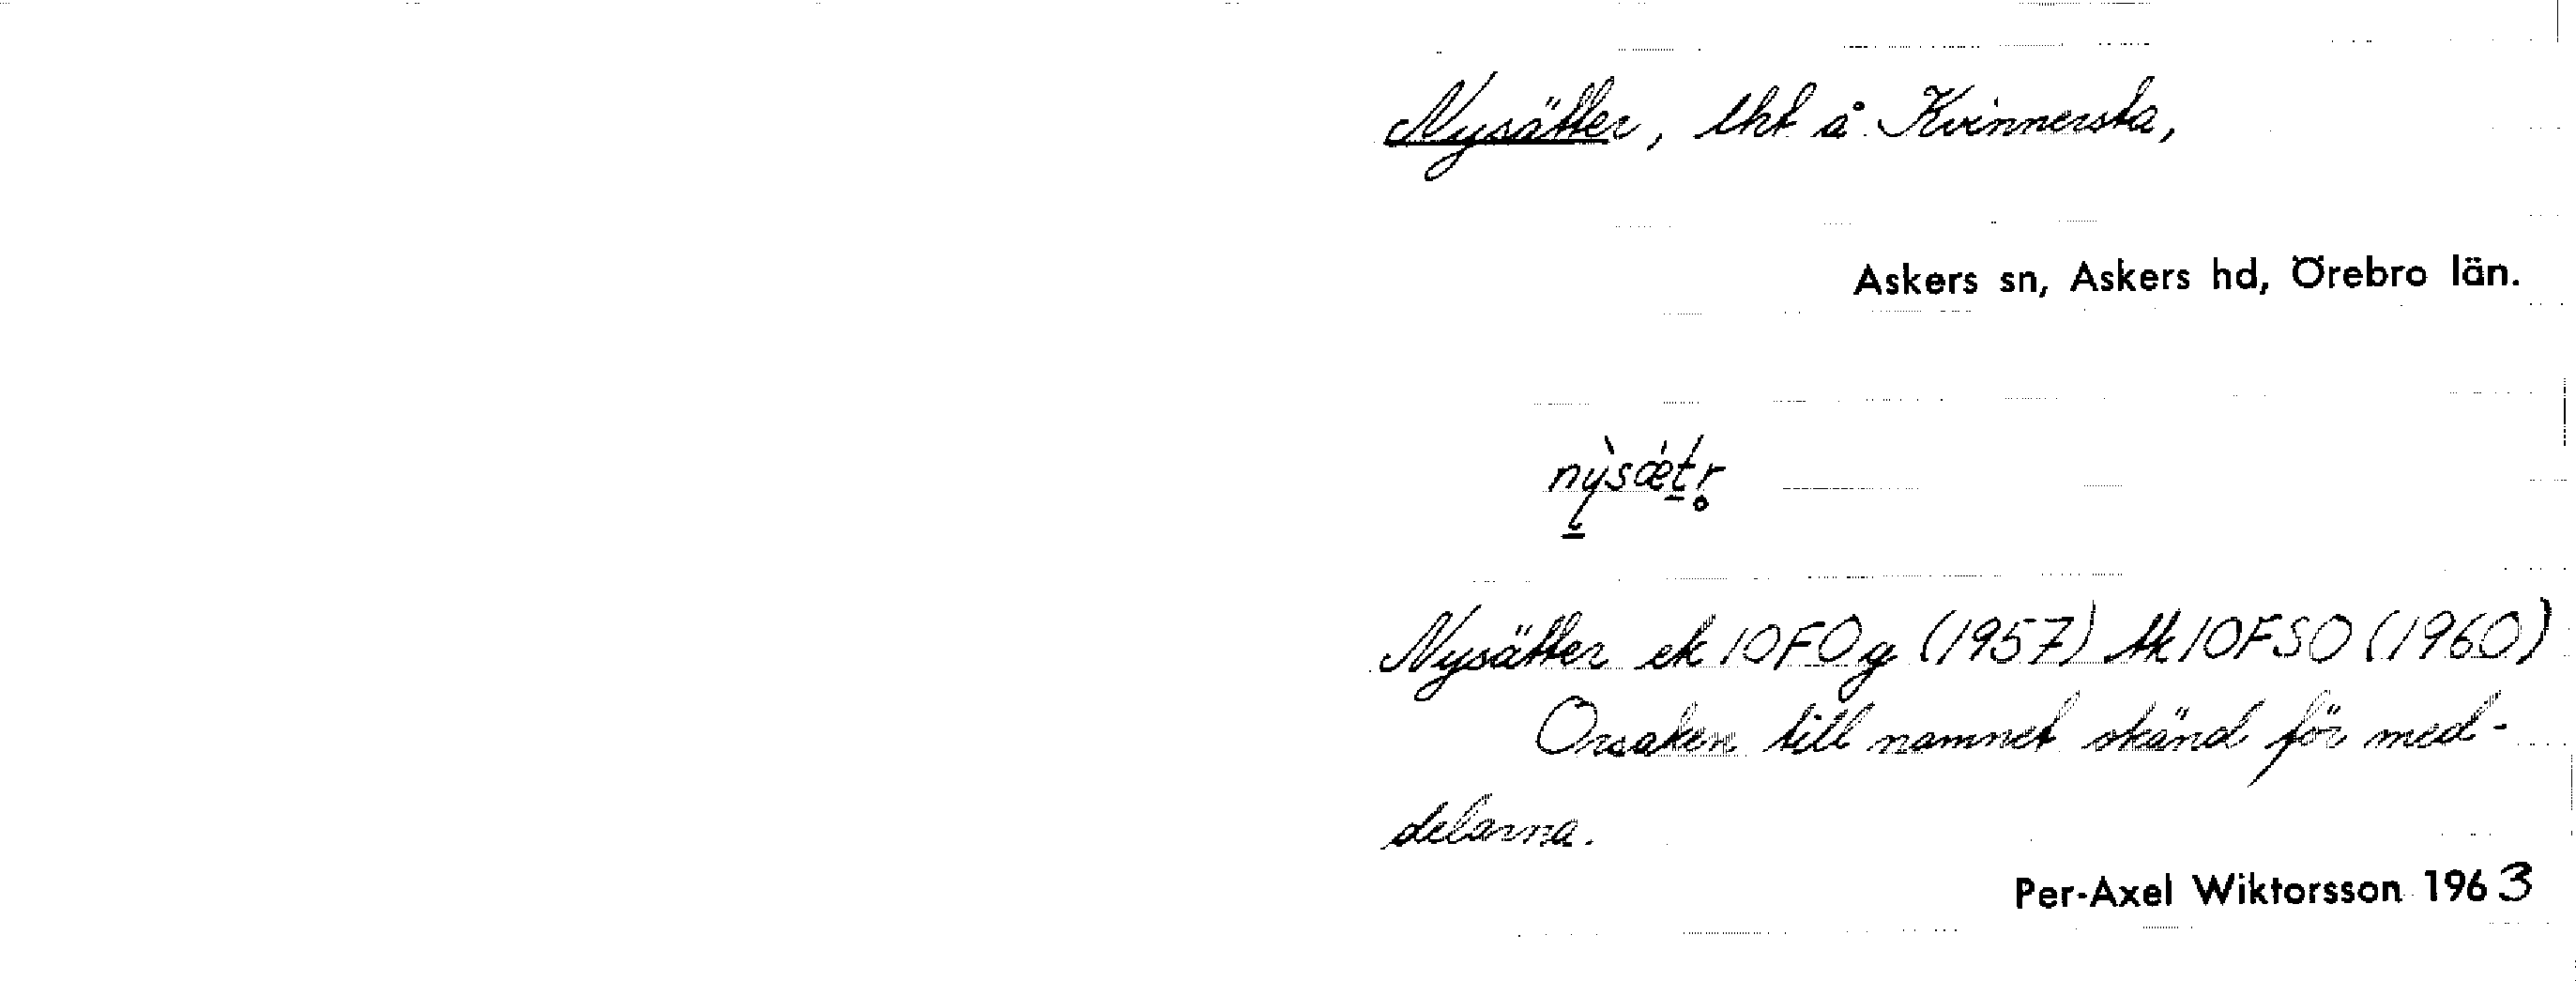 Nysätter, lht å Kvinnersta,
Askers sn, Askers hd, Örebro län.
nỳsǽtr̥
Nysätter ek 10F0g (1957) tk 10FSO (1960)
Orsaken till namnet okänd för med-
delarna.
Per-Axel Wiktorsson 1963